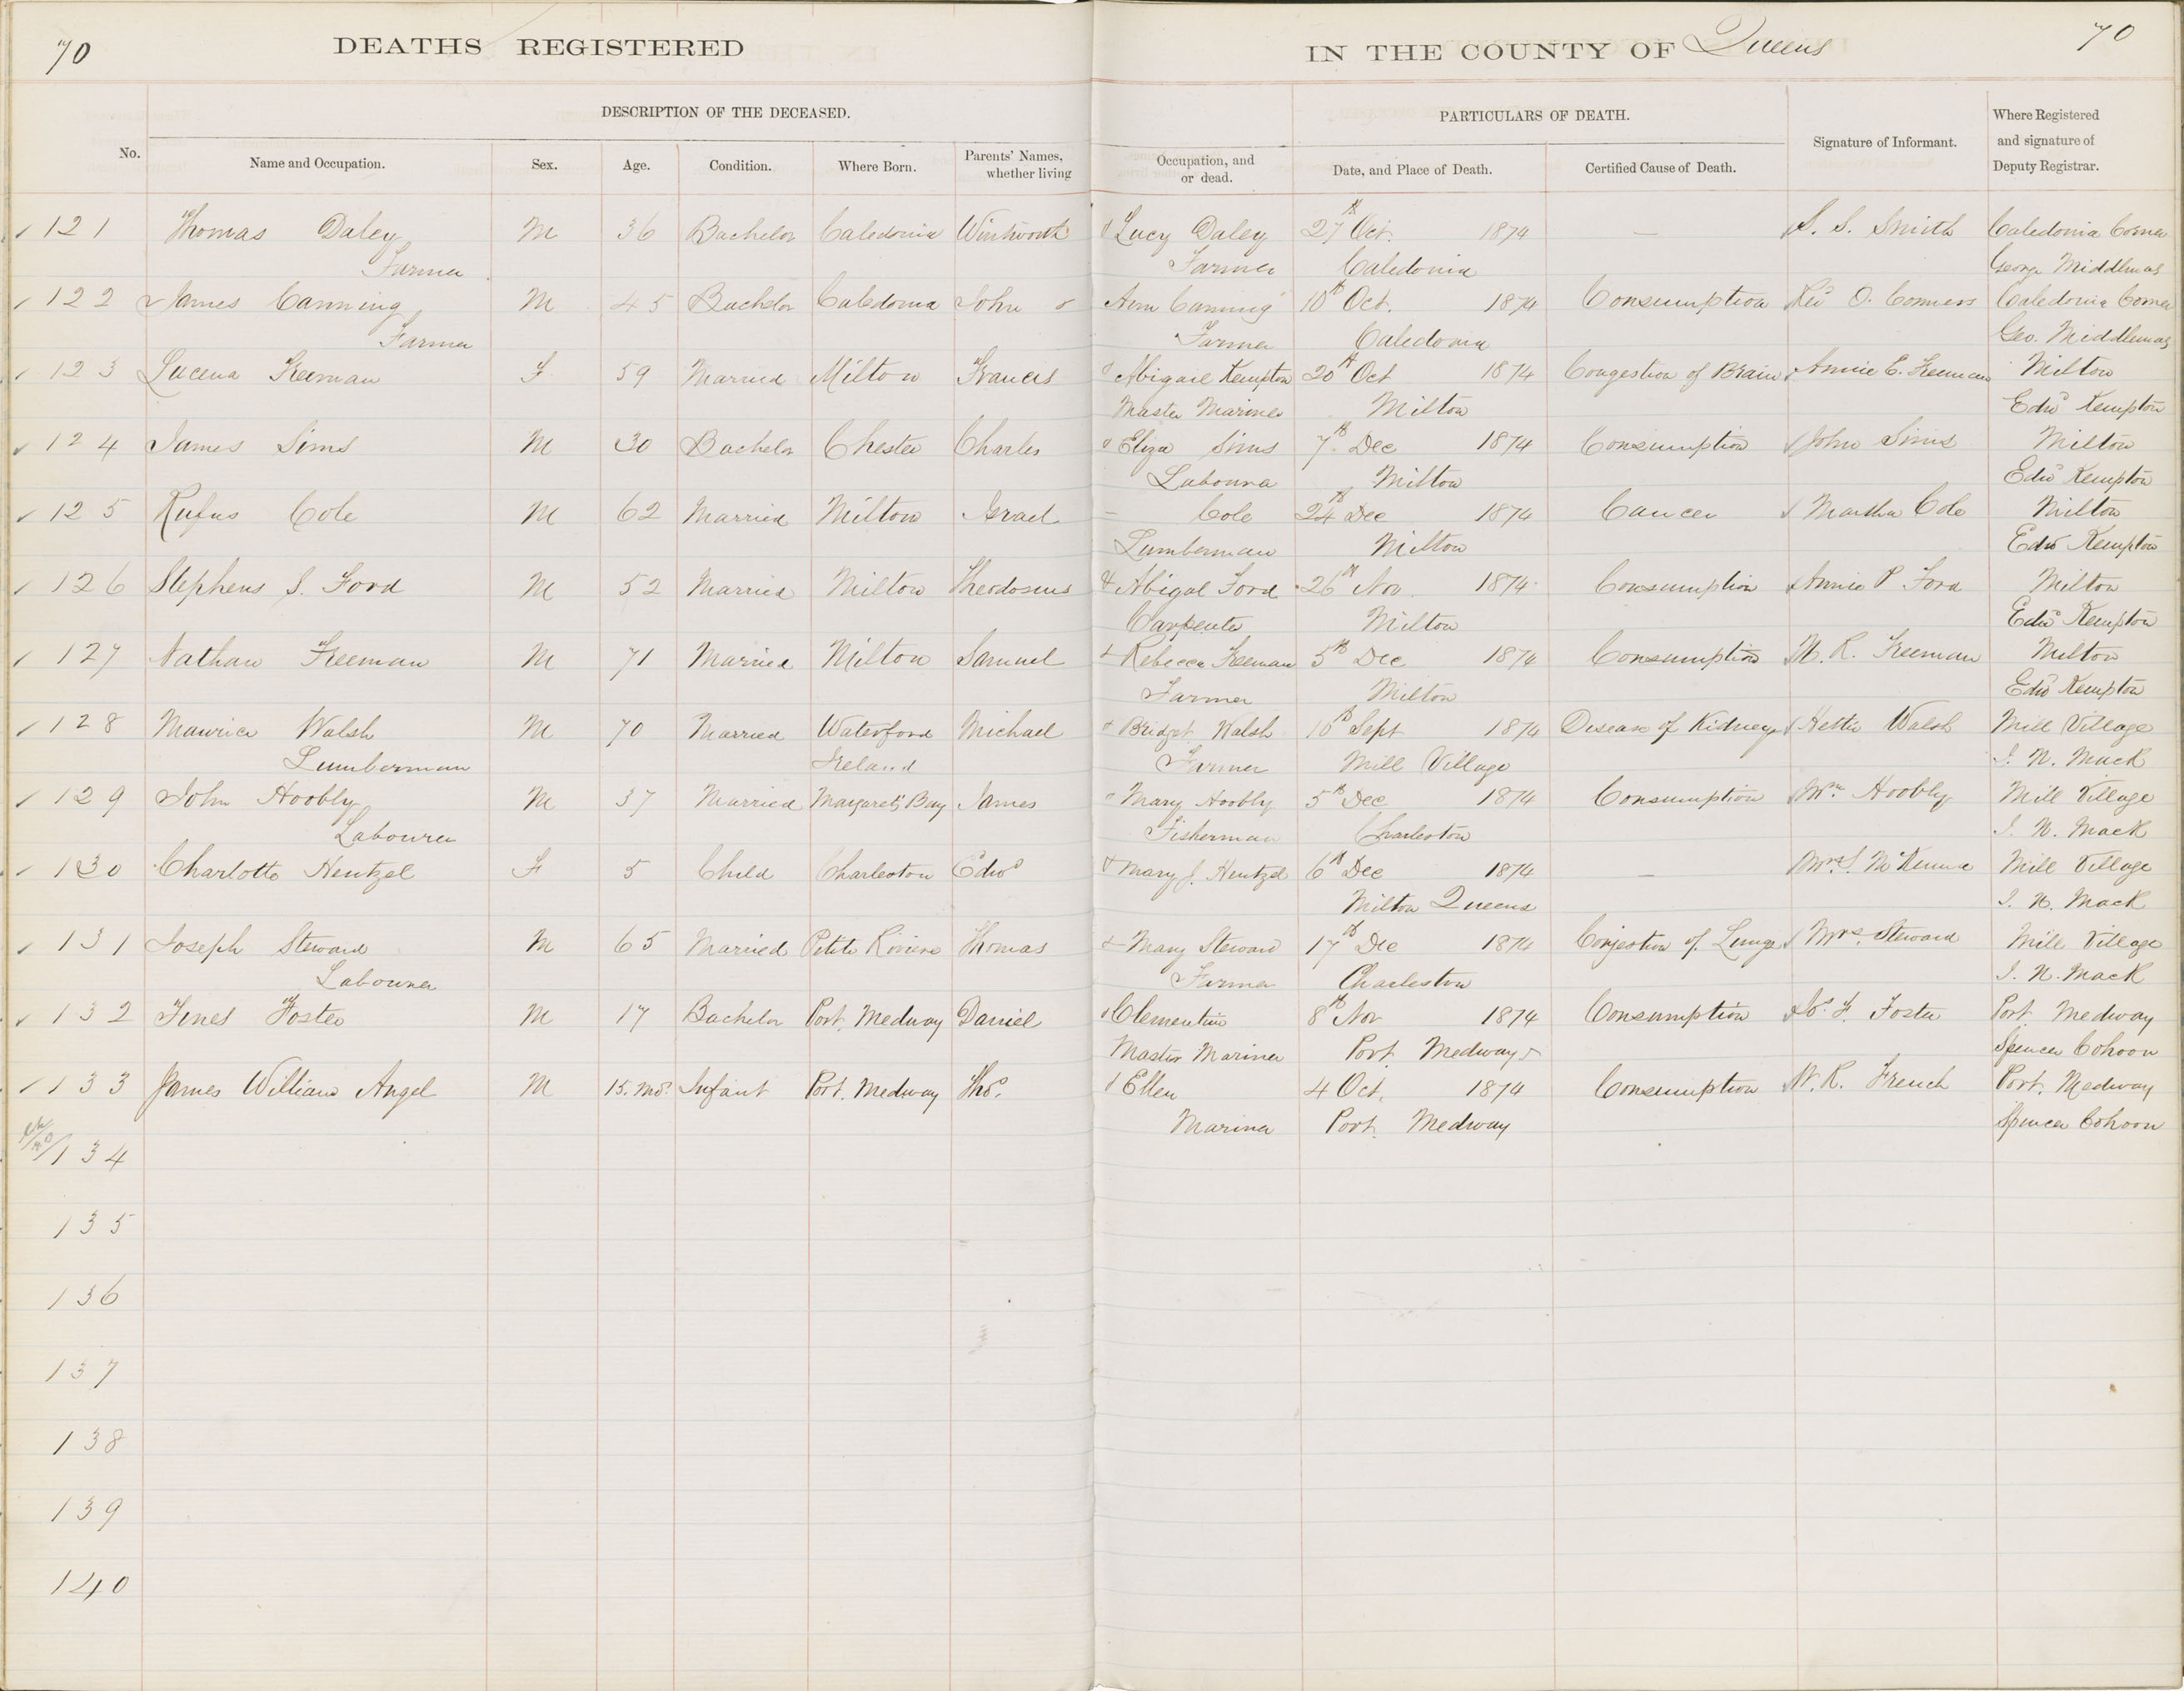 70 DEATHS REGISTERED IN THE COUNTY OF Queens 70
DESCRIPTION OF THE DECEASED. PARTICULARS OF DEATH.
No. Name and Occupation. Sex. Age. Condition. Where Born. Parents' Names, whether living Occupation, and or dead. Date, and Place of Death. Certified Cause of Death. Signature of Informant. Where Registered and signature of Deputy Registrar.
121 Thomas Daley M 36 Bachelor Caledonia Wintworth & Lucy Daley 27th Oct. 1874 — S. S. Smith Caledonia Corner
Farmer Farmer Caledonia George Middlemas
122 James Canning M 45 Bachelor Caledonia John & Ann Canning 10th Oct. 1874 Consumption Revd O. Conners Caledonia Corner
Farmer Farmer Caledonia Geo. Middlemas
123 Lucena Freeman F 59 Married Milton Francis & Abigail Kempton 20th Oct 1874 Congestion of Brain Annie E. Freeman Milton
Master Mariner Milton Edwd Kempton
124 James Sims M 30 Bachelor Chester Charles & Eliza Sims 7th Dec 1874 Consumption John Sims Milton
Labourer Milton Edwd Kempton
125 Rufus Cole M 62 Married Milton Israel — Cole 24th Dec 1874 Cancer Martha Cole Milton
Lumberman Milton Edwd Kempton
126 Stephens S. Ford M 52 Married Milton Theodosius & Abigal Ford 26th Nov. 1874 Consumption Annie P Ford Milton
Carpenter Milton Edwd Kempton
127 Nathan Freeman M 71 Married Milton Samuel & Rebecca Freeman 5th Dec 1874 Consumption N. R. Freeman Milton
Farmer Milton Edwd Kempton
128 Maurice Walsh M 70 Married Waterford Michael & Bridget Walsh 10th Sept 1874 Disease of Kidneys Hettie Walsh Mill Village
Lumberman Ireland Farmer Mill Village I. N. Mack
129 John Hoobly M 37 Married Margarets Bay James & Mary Hoobly 5th Dec 1874 Consumption Wm Hoobly Mill Village
Labourer Fisherman Charleston I. N. Mack
130 Charlotte Hentzel F 5 Child Charleston Edwd & Mary J. Hentzel 6th Dec 1874 — Mrs. S. McKenna Mill Village
Milton Queens I. N. Mack
131 Joseph Steward M 65 Married Petite Riviere Thomas & Mary Steward 17th Dec 1874 Conjestion of Lungs Mrs. Steward Mill Village
Labourer Farmer Charleston I. N. Mack
132 Foster M 17 Bachelor Port Medway Daniel & Clementine 8th Nov 1874 Consumption F. Foster Port Medway
Master Mariner Port Medway Spencer Cohoon
133 James William Angel M 15. Mos. Infant Port. Medway Thos. & Ellen 4 Oct. 1874 Consumption W. R. French Port. Medway
Mariner Port Medway Spencer Cohoon
134
135
136
137
138
139
140